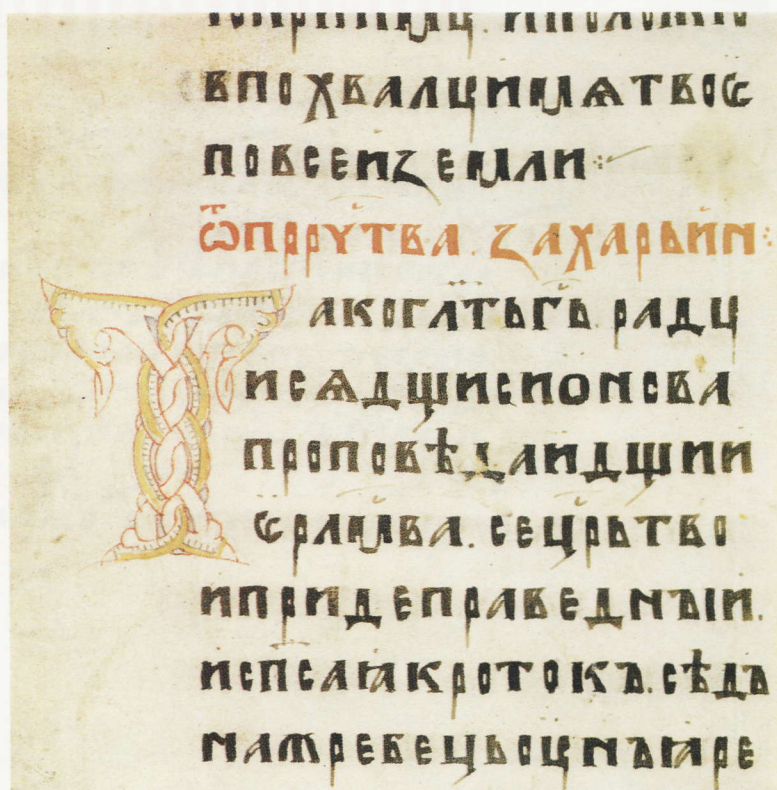 в похвалꙋ имѧ твоѥ
по всеи ꙁемли
ѿ прр҃ⷪ҇чтва ꙁахарьин
Тако гл҃ть гь҃ радꙋ
исѧ дщи сионова
проповѣдаи дщи и
ѥрл҃мва. се цр҃ь тво
и приде праведнꙑи.
и сп҃саꙗ кротокъ. сѣдъ
на жребець оцнъ ꙗре